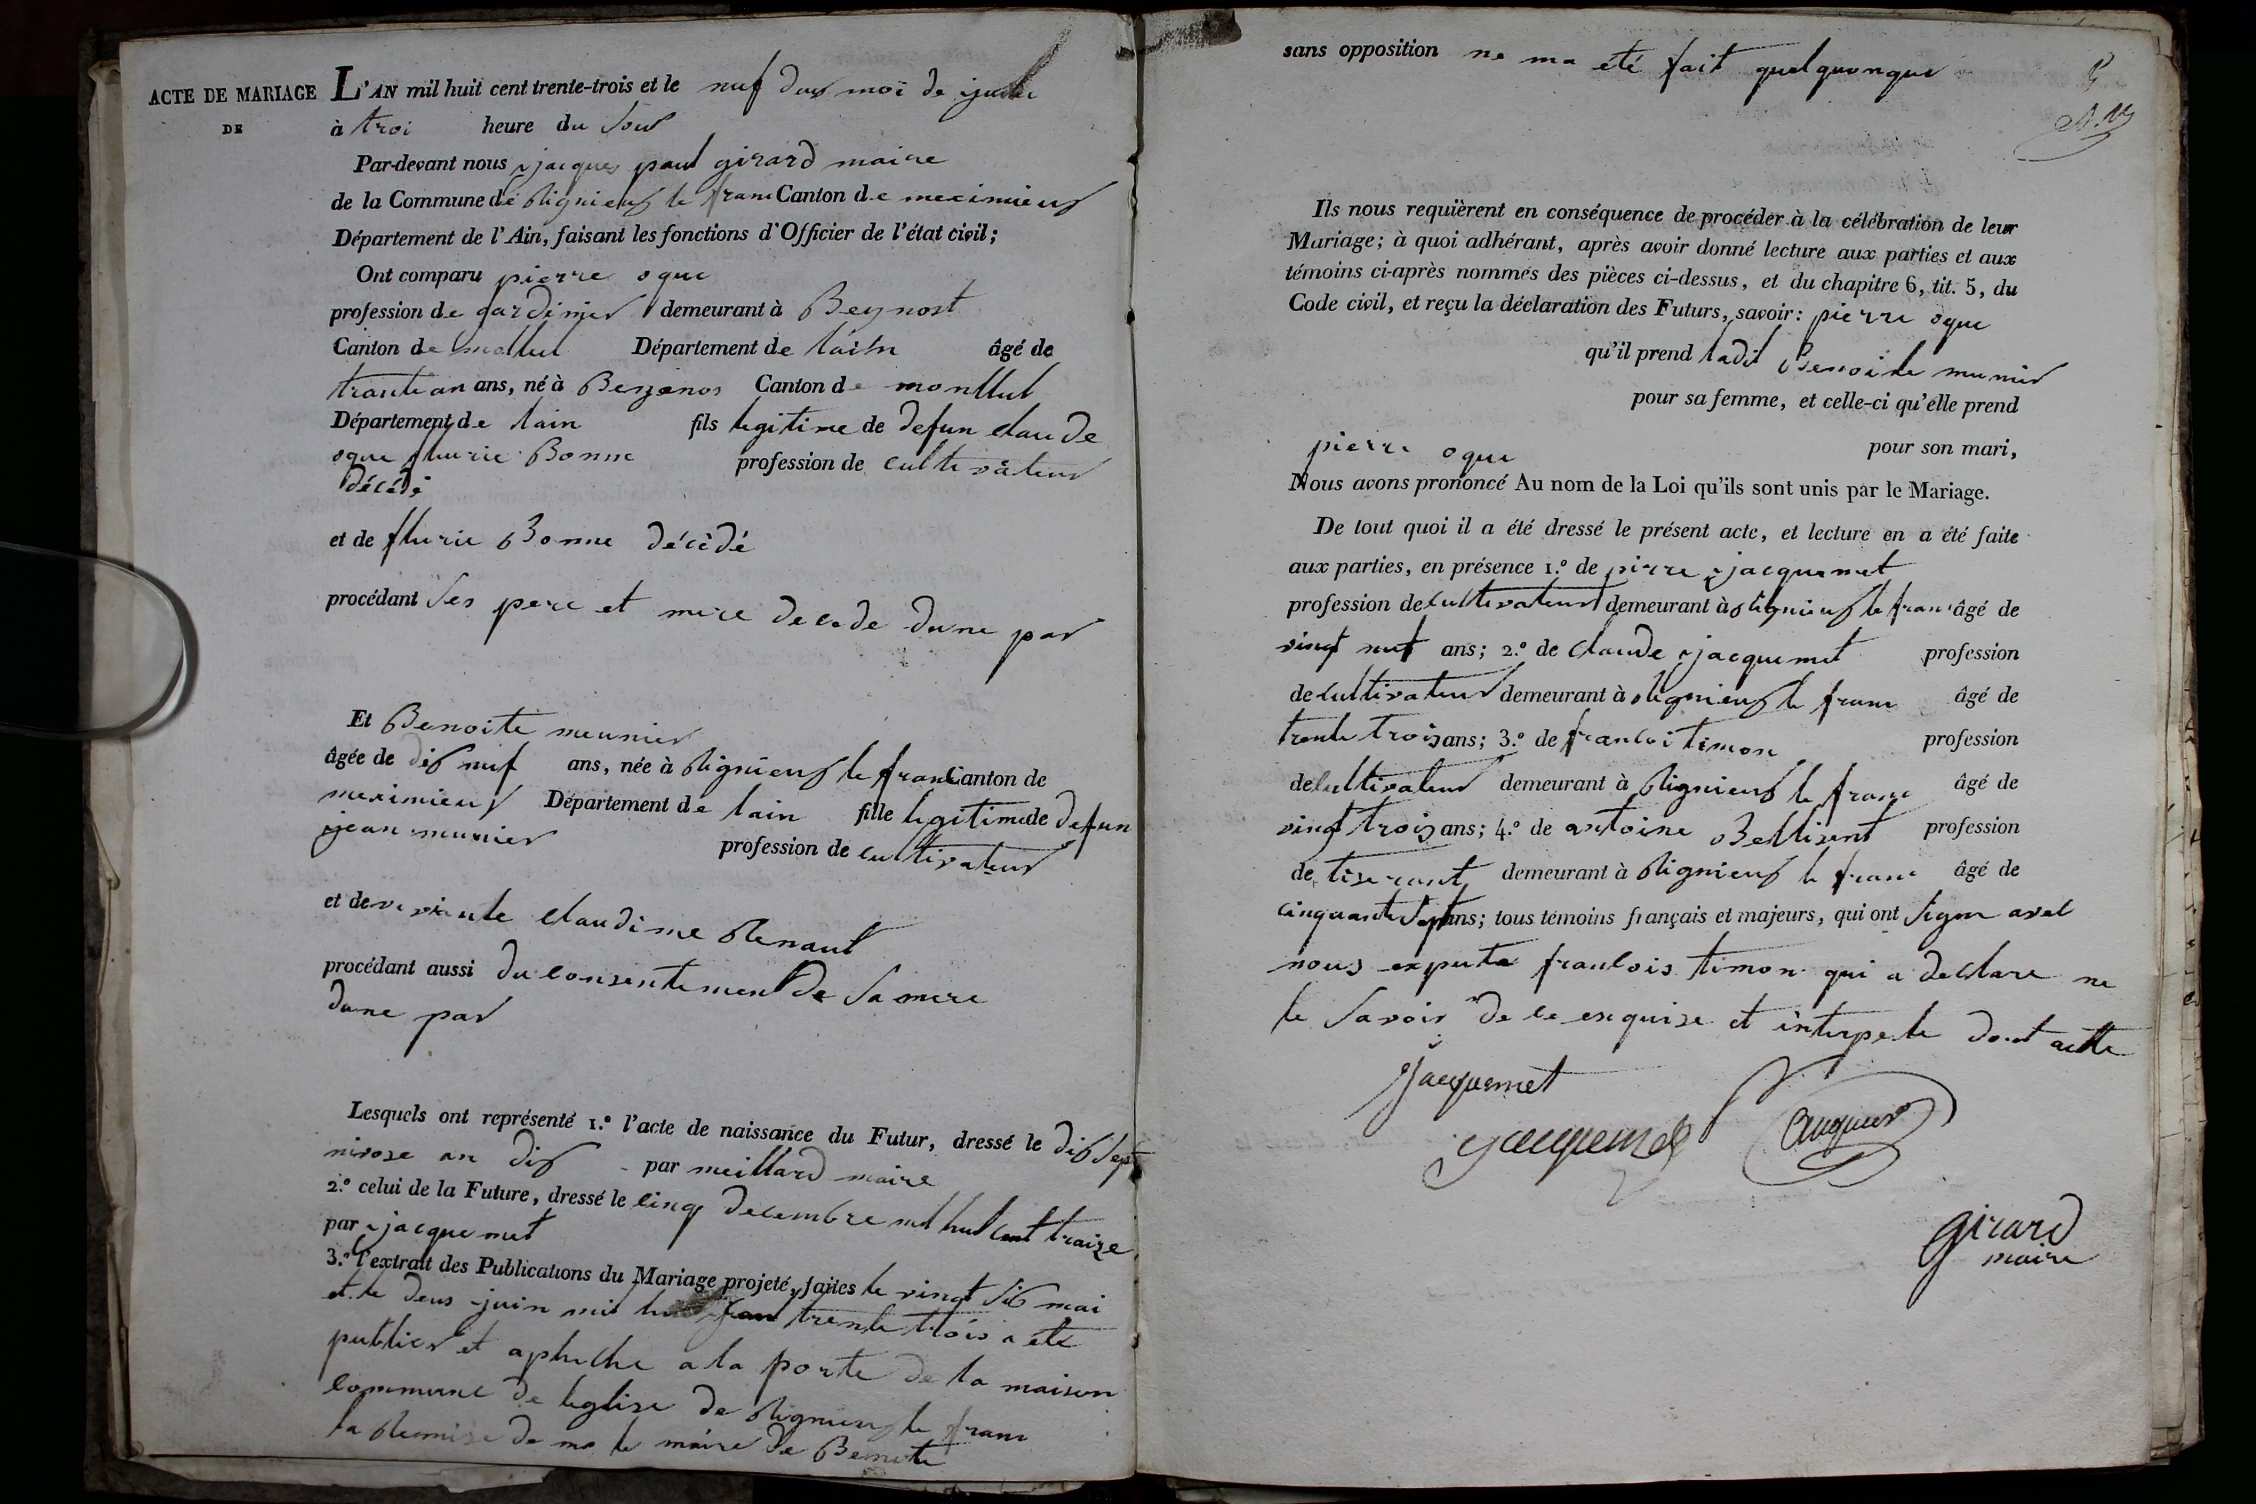 ACTE DE MARIAGE
DE
L'AN mil huit cent trente-trois et le nuf dux moi de
à troi heure du Soir
Par-devant nous jacques paul girard maire
de la Commune de Rignieux le franc Canton de meximieux
Département de l'Ain, faisant les fonctions d'Officier de l'état civil;
Ont comparu pierre oque
profession de gardinier demeurant à Beynost
Canton de Département de lain âgé de
trante an ans, né à Canton de montluel
Département de lain fils legitime de defun claude
oque flurie Bonne profession de cultivateur
décédé
et de flurie Bonne décédé
procédant Ses pere et mere decede dune par
Et Benoite meunier
âgée de dix nuf ans, née à Rignieux le franc Canton de
meximieux Département de lain fille legitime de defun
jean meunier profession de cultivateur
et de vivante claudine Renaut
procédant aussi du consentement De Sa mere
dune par
Lesquels ont représenté 1.º l'acte de naissance du Futur, dressé le dix Sept
nivose an dix par meillard maire
2.º celui de la Future, dressé le cinq decembre mil huit cent traize
par jacquemet
3.º l'extrait des Publications du Mariage projeté, faites le vingt Six mai
et le deux juin mil trente trois a été
publier et aphiche a la porte de la maison
commune de leglise de Rignieux le franc
la Remise de me le maire de
sans opposition ne ma eté fait quelquonque
Ils nous requièrent en conséquence de procéder à la célébration de leur
Mariage; à quoi adhérant, après avoir donné lecture aux parties et aux
témoins ci-après nommés des pièces ci-dessus, et du chapitre 6, tit. 5, du
Code civil, et reçu la déclaration des Futurs, savoir: pierre oque
qu'il prend ladit Benoite munier
pour sa femme, et celle-ci qu'elle prend
pierre oque pour son mari,
Nous avons prononcé Au nom de la Loi qu'ils sont unis par le Mariage.
De tout quoi il a été dressé le présent acte, et lecture en a été faite
aux parties, en présence 1.º de pirre jacquemet
profession de cultivateur demeurant à Rignieux le franc âgé de
vingt nuf ans; 2.º de Claude jacquemet profession
de cultivateur demeurant à Rignieux le franc âgé de
trente trois ans; 3.º de francoi timon profession
de cultivateur demeurant à Rignieux le franc âgé de
vingt trois ans; 4.º de antoine Bellisent profession
de tiserant demeurant à Rignieux le franc âgé de
cinquante Sept ans; tous témoins français et majeurs, qui ont Signe avec
nous expute francois timon qui a declare ne
le Savoir de ce enquise et interpele dont acte
Jacquemet
Jacquemet
girard
maire